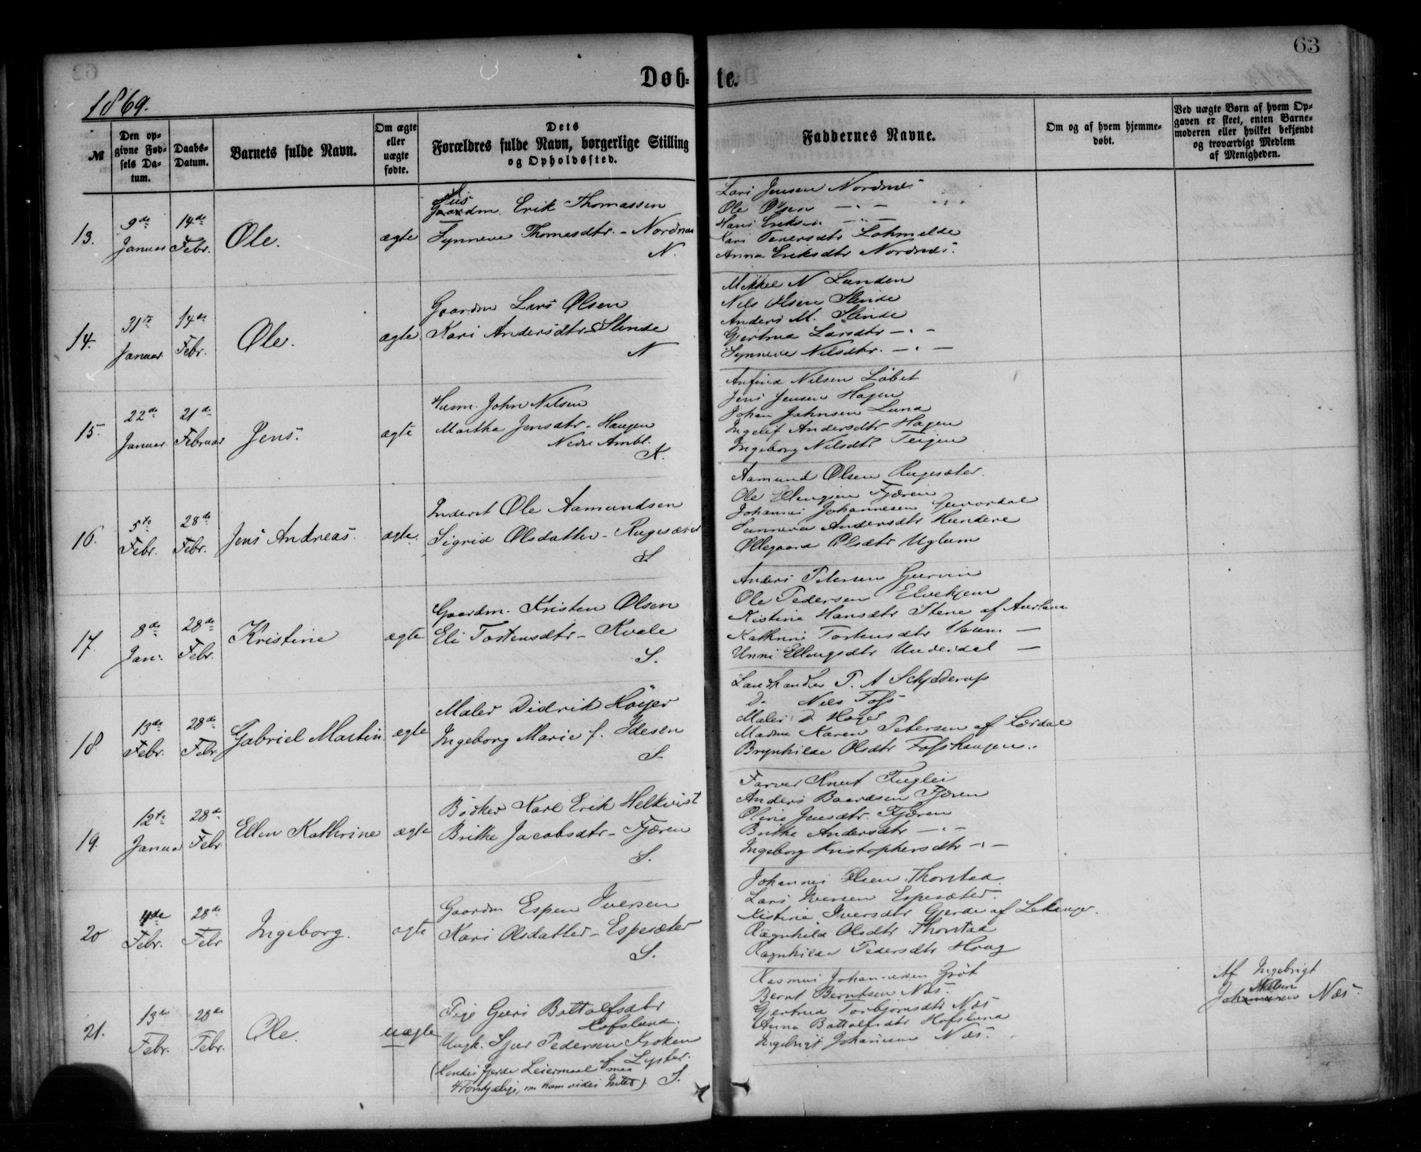 63
Døb- te.
1869.
№
Den op-
givne Fød-
sels Da-
tum.
Daabs-
Datum.
Barnets fulde Navn.
Om ægte
eller
uægte
fødte.
Dets
Forældres fulde Navn, borgerlige Stilling
og Opholdssted.
Faddernes Navne.
Om og af hvem hjemme-
døbt.
Ved uægte Børn af hvem Op-
gaven er skeet, enten Barne-
moderen eller hvilket bekjendt
og troværdigt Medlem
af Menigheden.
13.
9de
Januar
14de
Febr.
Ole.
ægte
Huus
Gaardm. Erik Thomassen
Synneve Thomasdtr - Nordnæs
N.
Lars Jensen Nordnæs
Ole Olsen — " —
Hans Eriksen — " —
Kari Iversdtr Lohmelde
Anna Eriksdtr Nordnæs.
14.
31te
Januar
14de
Febr.
Ole.
ægte
Gaardm Lars Olsen
Kari Andersdtr Slinde
N
Mikkel N Lunden
Nils Olsen Slinde
Anders M. Slinde
Gjertrud Larsdtr — " —
Synneve Nilsdtr. — " —
15.
22de
Januar
21de
Februar
Jens.
ægte
Husm. John Nilsen
Martha Jensdtr - Haugen
Nedre Ambl.
K.
Anfind Nilsen Løbet
Jens Jensen Hagen
Johan Johnsen Lund
Ingelef Andersdtr Hagen
Ingeborg Nilsdtr Teigen
16.
5te
Febr.
28de
Febr.
Jens Andreas.
ægte.
Inderst Ole Aamundsen
Sigrid Olsdatter - Rugesæter
S.
Aamund Olsen Rugesæter.
Ole Ellingsen Fjæren
Johannes Johannesen
Sunneva Andersdtr Hundere
Ollegaard Olsdtr Uglum
17.
8de
Jan.
28de
Febr.
Kristine
ægte
Gaardm. Kristen Olsen
Eli Torstensdtr - Kvale
S.
Anders Petersen Gurvin
Ole Pedersen Elvekjem
Kistine Hansdtr Stene af Aurland
Kathrine Torstensdtr —
Unni Ellingsdtr Underdal —
18
13de
Febr.
28de
Febr.
Gabriel Martin
ægte
Maler Didrik Høyer
Ingeborg Marie f. Idesen
S.
Landhandler P. A Schjelderup
Do Nils Foss
Maler D Høyer
Madme Karen Petersen af Lærdal
Brynhilde Olsdtr Fosshaugen.
19.
12te
Januar
28de
Febr
Ellen Kathrine
ægte
Bødker Karl Erik Helkvist
Britte Jacobsdtr - Fjæren
S.
Farver Knut Fuglei
Anders Baardsen Fjæren
Oline Jensdtr Fjæren
Britte Andersdtr — " —
Ingeborg Kristophersdtr — " —
20
4de
Febr.
28de
Febr
Ingeborg.
ægte
Gaardm Espen Iversen
Kari Olsdatter - Espesæter
S.
Johannes Olsen Thorstad
Lars Iversen Espesæter.
Kistine Iversdtr Gjerde af Lekanger.
Ragnhild Olsdtr Thorstad
Ragnhilde Pedersdtr Haug
21.
13de
Febr.
28de
Febr.
Ole.
uægte
Pige Guri Bottolfsdtr
Hofslund.
Ungk. Sjur Pedersen Kroken
af Lyster.
(Hendes fjerde Leiermaal med
4 forskjellige, om ham vides Intet) S.
Rasmus Johannesen Grøt
Bernt Berntsen Næs.
Gjertrud Torbjørnsdtr Næs
Anna Bottolfsdtr Hofslund
Ingebrigt Johannesen Næs.
Af Ingebrigt
Nilsen
Johannesen Næs.